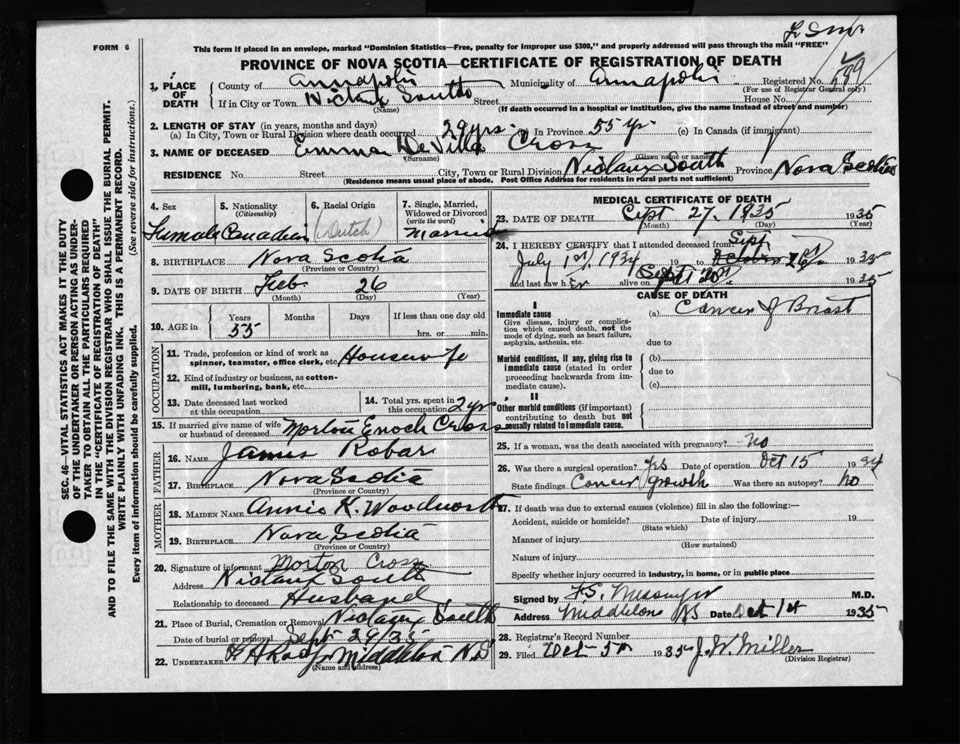 FORM 6
This form if placed in an envelope, marked "Dominion Statistics—Free, penalty for improper use $300," and properly addressed will pass through the mail "FREE"
PROVINCE OF NOVA SCOTIA—CERTIFICATE OF REGISTRATION OF DEATH
1. PLACE OF DEATH
County of Annapolis Municipality of Annapolis Registered No. 289
(For use of Registrar General only)
If in City or Town Nictaux South Street House No.
(Name) (If death occurred in a hospital or institution, give the name instead of street and number)
2. LENGTH OF STAY (in years, months and days)
(a) In City, Town or Rural Division where death occurred 29 yrs. (b) In Province 55 yr. (c) In Canada (if immigrant)
3. NAME OF DECEASED Emma DeVilla Cross
(Surname) (Given name or names)
RESIDENCE No. Street City, Town or Rural Division Nictaux South Province Nova Scotia
(Residence means usual place of abode. Post Office Address for residents in rural parts not sufficient)
4. Sex
Female
5. Nationality
(Citizenship)
Canadian
6. Racial Origin
(Dutch)
7. Single, Married, Widowed or Divorced
(write the word)
Married
8. BIRTHPLACE Nova Scotia
(Province or Country)
9. DATE OF BIRTH Feb 26
(Month) (Day) (Year)
10. AGE in
Years Months Days If less than one day old
55 hrs. or min.
OCCUPATION
11. Trade, profession or kind of work as spinner, teamster, office clerk, etc. Housewife
12. Kind of industry or business, as cotton-mill, lumbering, bank, etc.
13. Date deceased last worked at this occupation
14. Total yrs. spent in this occupation 2 yrs
15. If married give name of wife or husband of deceased Morton Enoch Cross
FATHER
16. NAME James Robar
17. BIRTHPLACE Nova Scotia
(Province or Country)
MOTHER
18. MAIDEN NAME Annie K. Woodworth
19. BIRTHPLACE Nova Scotia
(Province or Country)
20. Signature of informant Morton Cross
Address Nictaux South
Relationship to deceased Husband
21. Place of Burial, Cremation or Removal Nictaux South
Date of burial or removal Sept 29/35
22. UNDERTAKER Middleton N.S
(Name and address)
MEDICAL CERTIFICATE OF DEATH
23. DATE OF DEATH Sept 27. 1935 1935
(Month) (Day) (Year)
24. I HEREBY CERTIFY that I attended deceased from Sept
July 1st, 1934 19 to October 26th 1935
and last saw her alive on Sept 20th 1935
CAUSE OF DEATH
I
Immediate cause
Give disease, injury or complication which caused death, not the mode of dying, such as heart failure, asphyxia, asthenia, etc.
(a) Cancer of Breast
due to
Morbid conditions, if any, giving rise to immediate cause (stated in order proceeding backwards from immediate cause)
(b)
due to
(c)
II
Other morbid conditions (if important) contributing to death but not causally related to immediate cause.
25. If a woman, was the death associated with pregnancy? No
26. Was there a surgical operation? Yes Date of operation Oct 15 1934
State findings Cancer growth Was there an autopsy? No
27. If death was due to external causes (violence) fill in also the following:—
Accident, suicide or homicide? Date of injury 19
(State which)
Manner of injury
(How sustained)
Nature of injury
Specify whether injury occurred in industry, in home, or in public place
Signed by F.S. Messenger M.D.
Address Middleton NS Date Oct 1st 1935
28. Registrar's Record Number
29. Filed Oct 5th 1935 J. W. Miller
(Division Registrar)
SEC. 46—VITAL STATISTICS ACT MAKES IT THE DUTY
OF THE UNDERTAKER OR PERSON ACTING AS UNDERTAKER
TO OBTAIN ALL THE PARTICULARS REQUIRED
IN THE "CERTIFICATE OF REGISTRATION OF DEATH"
AND TO FILE THE SAME WITH THE DIVISION REGISTRAR WHO SHALL ISSUE THE BURIAL PERMIT.
WRITE PLAINLY WITH UNFADING INK. THIS IS A PERMANENT RECORD.
Every item of information should be carefully supplied. (See reverse side for instructions.)